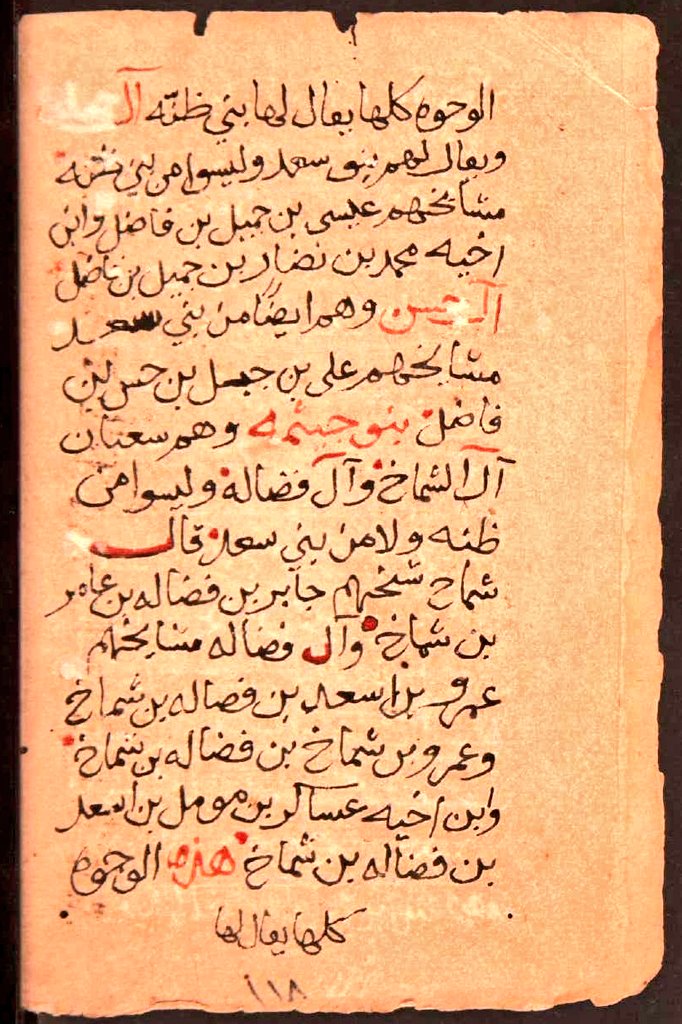 الوجوه كلها يقال لها بني ظنّه آل
ويقال لهم بنو سعد وليسوا من بني ظنه
مشايخهم عيسى بن جميل بن فاضل وابن
اخيه محمد بن نصار بن جميل بن فاضل
آل حسن وهم ايضًا من بني سعيد
مشايخهم على بن جميل بن حسن بن
فاضل بنو جشمه وهم سعنان
آل الشماخ وآل فضاله وليسوا من
ظنه ولا من بني سعد قال
شماخ شيخهم جابر بن فضاله بن عامر
بن شماخ وآل فضاله مشايخهم
عمرو بن اسعد بن فضاله بن شماخ
وعمرو بن شماخ بن فضاله بن شماخ
وابن اخيه عساكر بن مومل بن اسعد
بن فضاله بن شماخ هذه الوجوه
كلها يقال لها
١١٨